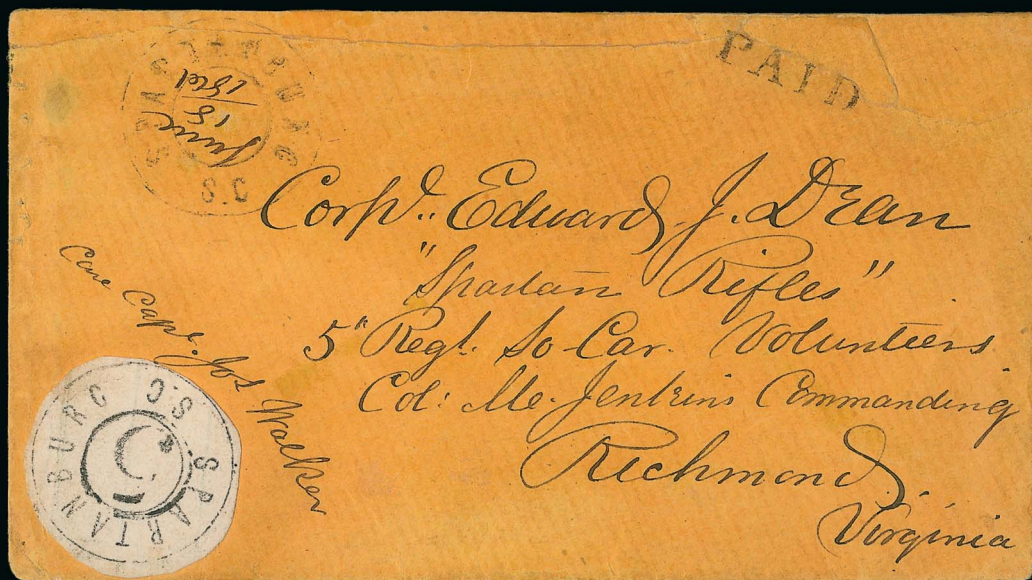 PAID
SPARTANBURG
S.C.
June
18
Corpl. Edward J. Dean
"Spartan Rifles"
5" Regt. So. Car. Volunteers
Col: Jenkins Commanding
Richmond,
Virginia
Care Capt. Jos Walker
SPARTANBURG SC
5